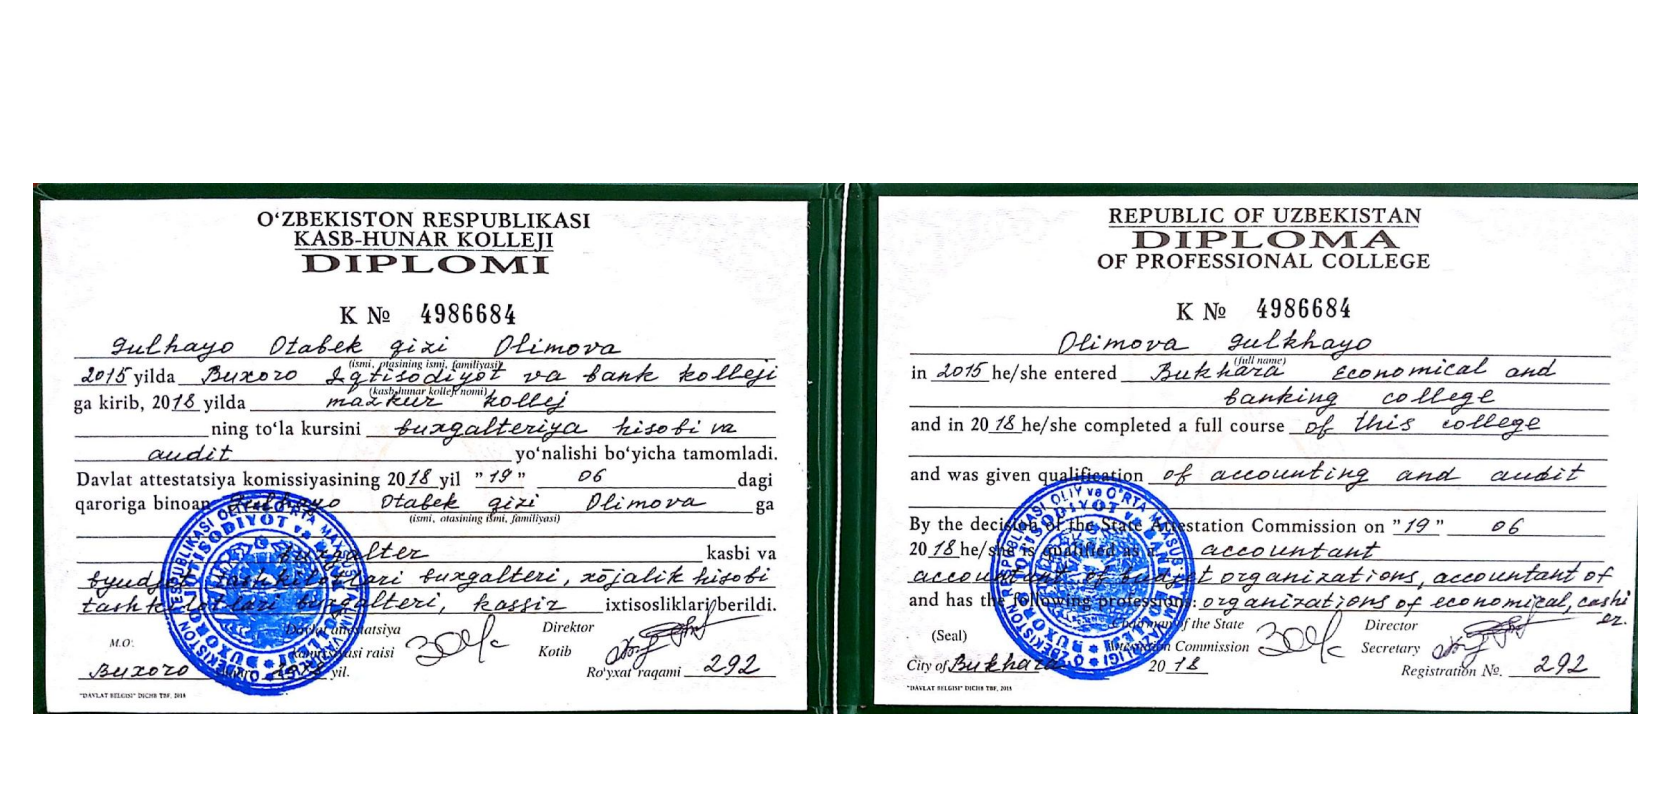 O‘ZBEKISTON RESPUBLIKASI
KASB-HUNAR KOLLEJI
DIPLOMI
K № 4986684
Gulhayo Otabek qizi Olimova
(ismi, otasining ismi, familiyasi)
2015 yilda Buxoro Iqtisodiyot va bank kolleji
(kasb-hunar kolleji nomi)
ga kirib, 2018 yilda mazkur kollej
ning to‘la kursini buxgalteriya hisobi va
audit yo‘nalishi bo‘yicha tamomladi.
Davlat attestatsiya komissiyasining 2018 yil "19" 06 dagi
qaroriga binoan Gulhayo Otabek qizi Olimova ga
(ismi, otasining ismi, familiyasi)
buxgalter kasbi va
byudjet tashkilotlari buxgalteri, xo‘jalik hisobi
tashkilotlari buxgalteri, kassir ixtisosliklari berildi.
M.O. Davlat attestatsiya komissiyasi raisi
Direktor
Kotib
Buxoro yil. Ro‘yxat raqami 292
"DAVLAT BELGISI" DICHB TBF, 2018
REPUBLIC OF UZBEKISTAN
DIPLOMA
OF PROFESSIONAL COLLEGE
K № 4986684
Olimova Gulkhayo
(full name)
in 2015 he/she entered Bukhara Economical and
banking college
and in 2018 he/she completed a full course of this college
and was given qualification of accounting and audit
By the decision of the State Attestation Commission on "19" 06
2018 he/she is qualified as a accountant
accountant of budget organizations, accountant of
and has the following professions: organizations of economical, cashi
er.
(Seal) Chairman of the State
Attestation Commission
Director
Secretary
City of Bukhara 2018 Registration №. 292
"DAVLAT BELGISI" DICHB TBF, 2018